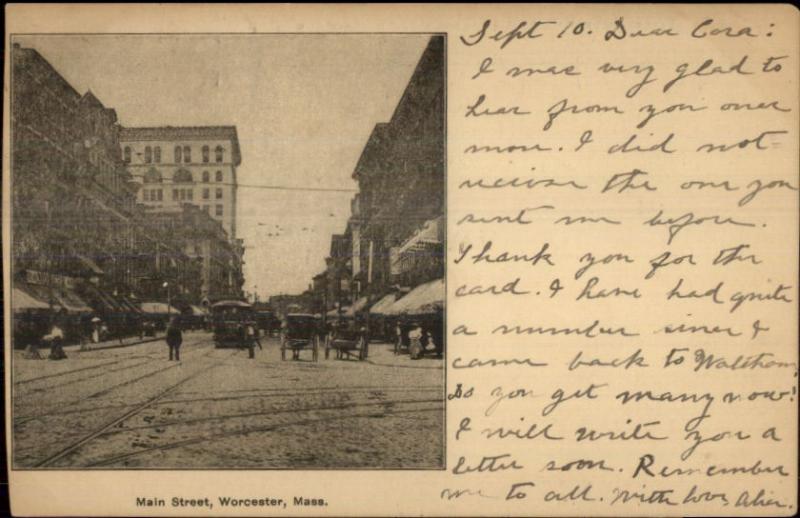 Sept 10. Dear Cora:
I was very glad to
hear from you once
more. I did not
receive the one you
sent me before.
Thank you for the
card. I have had quite
a number since I
came back to Waltham.
Do you get many now?
I will write you a
letter soon. Remember
me to all. With love, Alice.
Main Street, Worcester, Mass.